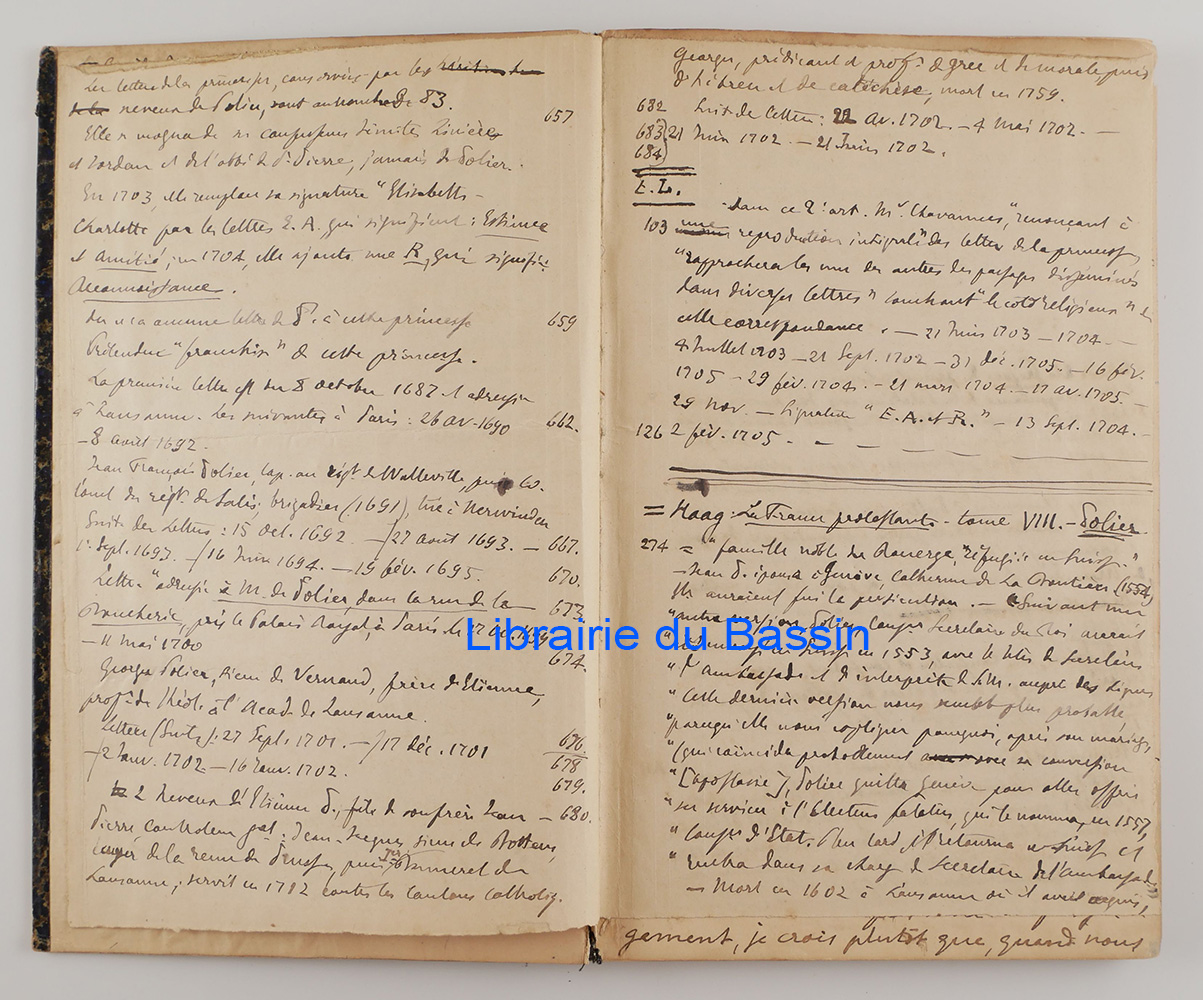 Les lettres de la princesse, conservées par les
neveux de Polier, sont au nombre de 83.
657
Elle se moqua de ses
et Jordan et de l'abbé de St. Pierre, jamais de Polier.
En 1703, elle remplace sa signature "Elisabeth-
Charlotte par les lettres E. A. qui signifient : Estime
et Amitié ; en 1704, elle ajouta une R, qui signifie
Reconnaissance.
On n'a aucune lettre de P. à cette princesse
659
Prétendue "franchise" de cette princesse.
La première lettre est du 8 octobre 1687 et adressée
à Lausanne. Les suivantes à Paris : 26 av. 1690
662.
- 8 août 1692.
Jean François Polier, cap. au régt. de Watteville, puis co-
lonel du régt. de Salis, brigadier (1691), tué à Nerwinden
Suite des Lettres : 15 oct. 1692. — 27 août 1693. — 667.
1er Sept. 1693. — 16 Juin 1694. — 19 fév. 1695.
670.
Lettre "adressée à M. de Polier, dans la rue de la
673
Boucherie, près le Palais Royal, à Paris le 17
674.
— 11 mai 1700
Georges Polier, sieur de Vernand, frère d'Etienne,
prof. de théol. à l'Acad. de Lausanne.
Lettres (Suite) : 27 Sept. 1701. — 17 déc. 1701
676.
— 2 Janv. 1702 — 16 Janv. 1702.
678
679.
2 neveux d'Etienne P., fils de son frère Jean
— 680.
Pierre controleur gal. : Jean-Jacques sieur de Bottens,
de la reine de Prusse, puis de
Lausanne ; servit en 1712 contre les cantons catholiq.
Georges, prédicant et prof. de grec et de morale, puis
d'hébreu et de catéchèse, mort en 1759.
682 Suite de Lettres : 22 av. 1702. — 4 mai 1702. —
683) 21 Juin 1702. — 21 Juin 1702.
684)
E. L.
Dans ce 2e art. Mr. Chavannes, "renonçant à
103 une reproduction intégrale" des lettres de la princesse
"rapprochera les uns des autres des passages disséminés
dans diverses lettres" touchant "le coté religieux" de
cette correspondance. — 21 Juin 1703 — 1704. —
4 Juillet 1703 — 21 Sept. 1702 — 31 déc. 1705. — 16 fév.
1705 — 29 fév. 1704. — 21 mars 1704. — 17 av. 1705. —
29 nov. — Signature "E. A. et R." — 13 Sept. 1704. —
126 2 fév. 1705. — — —
= Haag : La France protestante - tome VIII. — Polier
274 = "famille noble du Rouergue, réfugiée en Suisse."
— Jean P. épousa à Genève Catherine de La Boutière (1554)
Ils auraient fui la persécution. — "Suivant une
"autre version, Polier, Secrétaire du Roi aurait
en Suisse en 1553, avec le titre de Secrétaire
"d'ambassade et d'interprète de S. M. auprès des Ligues
"Cette dernière version nous semble plus probable,
"parcequ'elle nous explique pourquoi, après son mariage,
"(qui coïncida probablement avec sa conversion
"[apostasie], Polier quitta Genève pour aller offrir
"ses services à l'électeur palatin, qui le nomma, en 1557,
"Conser d'Etat. Plus tard, il retourna en Suisse et
"rentra dans sa charge de Secrétaire de l'ambassade
— Mort en 1602 à Lausanne où il avait acquis,
gement, je crois plutôt que, quand nous
Librairie du Bassin